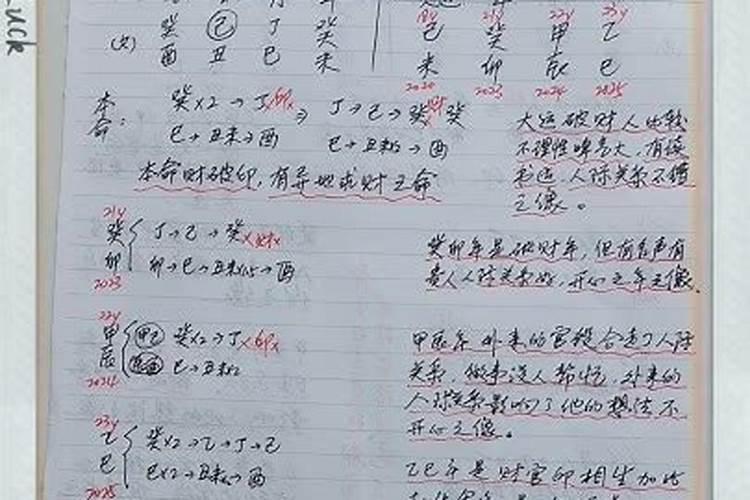 uck
18y 21y 22y 23y
癸 己 丁 癸 己 癸 甲 乙
(女) 酉 丑 巳 未 未 卯 辰 巳
2020 2023 2024 2025
本命: 癸x2→丁x卯x ⇒ 丁→己→癸x财x 癸
巳→丑未→酉 巳→丑未→酉
本命财破印,有异地求财之命
大运破财人比较
不理性 大,有
人际关系不
之像。
21y
癸 丁→己→癸x财x
卯 卯→巳→丑未→酉
2023
癸卯年是破财年,但有名声有
贵人人际关系好,开心之年之像.
22y
甲 甲己 癸x2→丁x卯x
辰 辰酉 巳→丑未x2
2024
甲辰年外来的官杀合走了人际
关系,做事没人帮忙,外来的
人际关系影响了他的想法不
开心之像。
23y
乙 癸x2→乙→丁→己
巳 巳x2→丑未→酉
2025
乙巳年是财官印相生加比